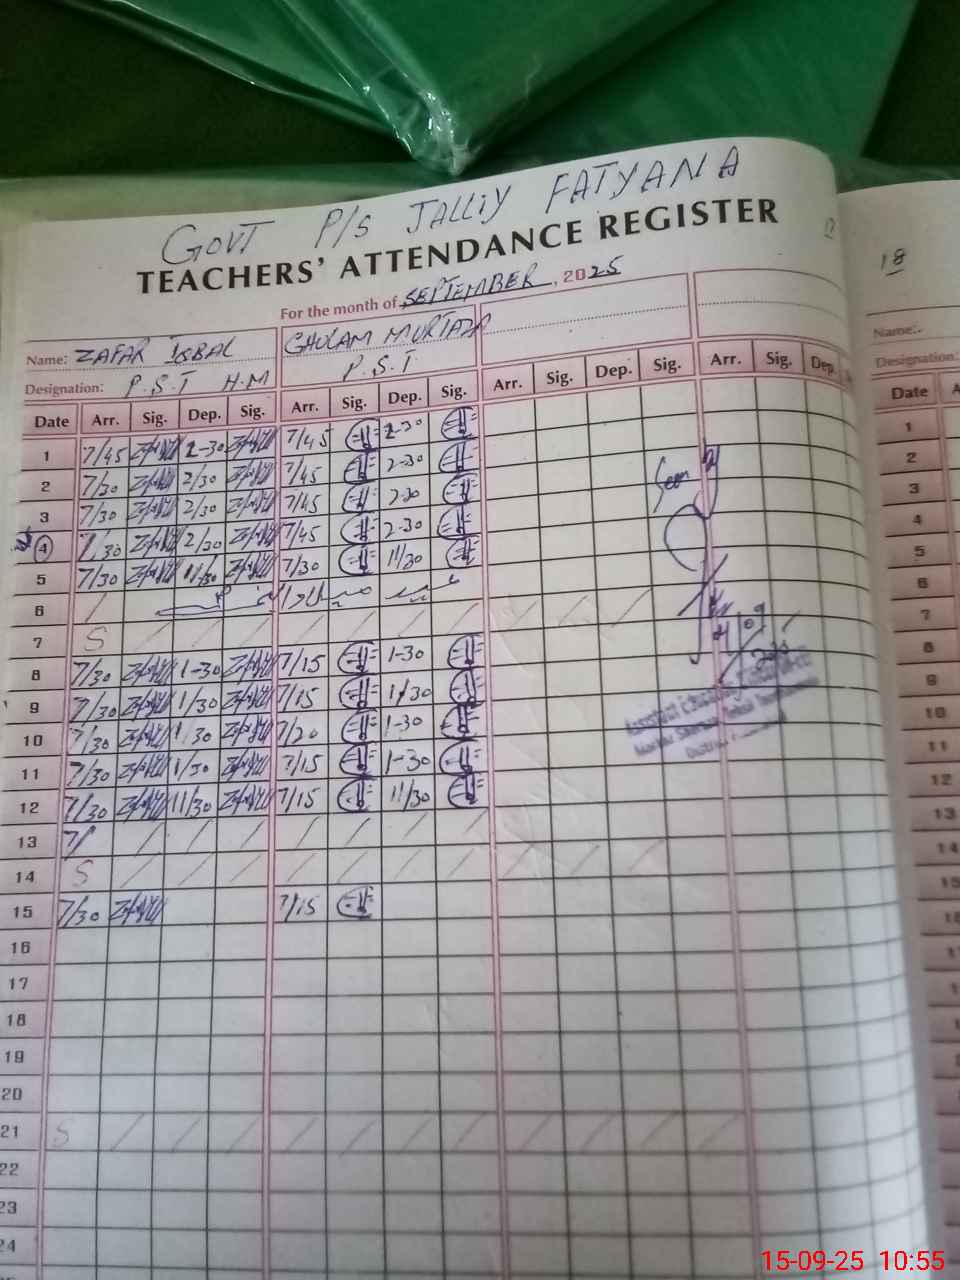 GOVT P/S JALLIY FATYANA
TEACHERS' ATTENDANCE REGISTER
For the month of SEPTEMBER, 2025
Name: ZAFAR IQBAL GHULAM MURTAZA
Designation: P.S.T H.M P.S.T
Date Arr. Sig. Dep. Sig. Arr. Sig. Dep. Sig. Arr. Sig. Dep. Sig. Arr. Sig. Dep.
1 7/45 2-30 7/45 2-30
2 7/30 2/30 7/45 2-30
3 7/30 2/30 7/45 2-30
4 7/30 2/30 7/45 2-30
5 7/30 11/30 7/30 11/30
6
7 S
8 7/30 1-30 7/15 1-30
9 7/30 1/30 7/15 1/30
10 7/30 1/30 7/20 1-30
11 7/30 1/30 7/15 1-30
12 7/30 11/30 7/15 11/30
13
14 S
15 7/30 7/15
16
17
18
19
20
21 S
22
23
24
18
Name:
Designation:
Date A
1
2
3
4
5
6
7
8
9
10
11
12
13
14
15
15-09-25 10:55